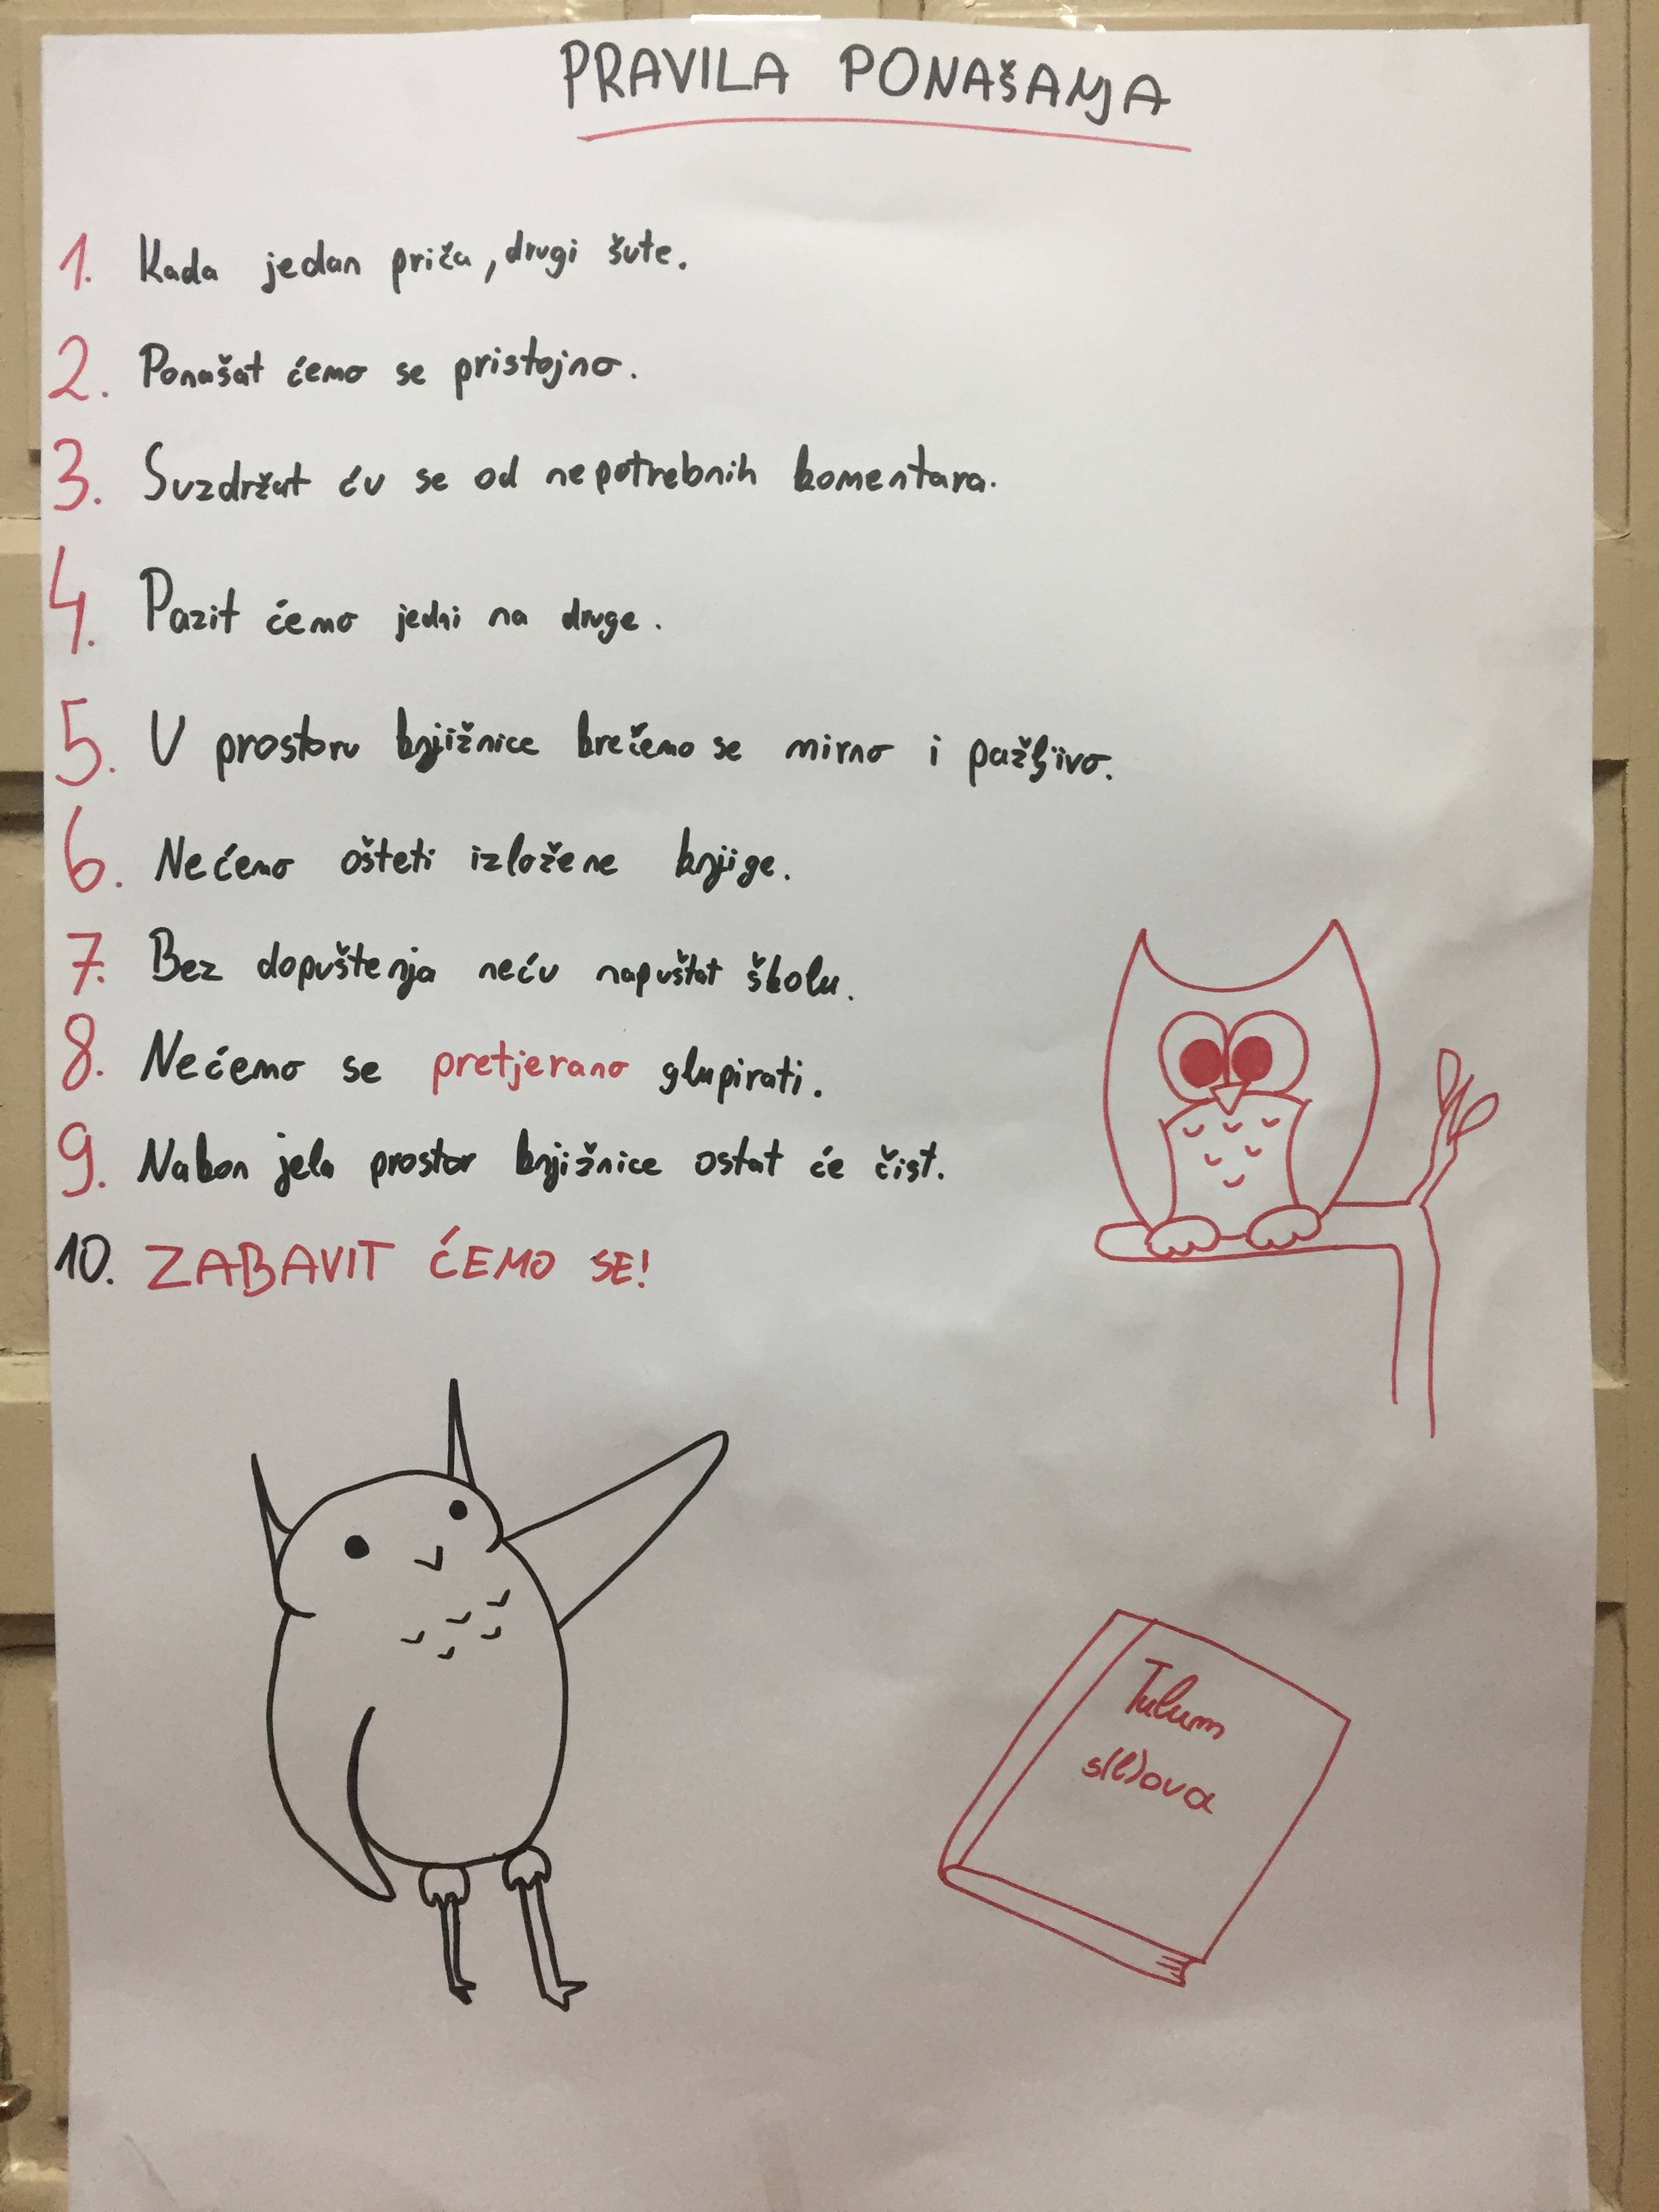 PRAVILA PONAŠANJA
1. Kada jedan priča, drugi šute.
2. Ponašat ćemo se pristojno.
3. Suzdržat ću se od nepotrebnih komentara.
4. Pazit ćemo jedni na druge.
5. U prostoru knjižnice krećemo se mirno i pažljivo.
6. Nećemo ošteti izložene knjige.
7. Bez dopuštenja neću napuštat školu.
8. Nećemo se pretjerano glupirati.
9. Nakon jela prostor knjižnice ostat će čist.
10. ZABAVIT ĆEMO SE!
Tulum
s(l)ova